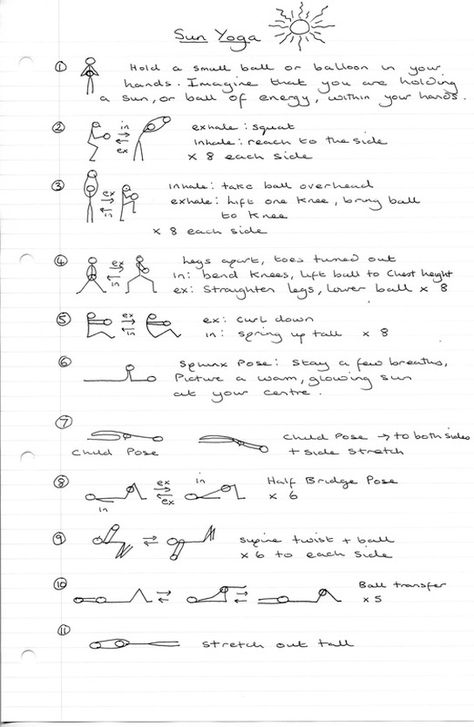 Sun Yoga
① Hold a small ball or balloon in your
hands. Imagine that you are holding
a sun, or ball of energy, within your hands.
② in
ex
exhale : squat
inhale : reach to the side
x 8 each side
③ ex
in
inhale : take ball overhead
exhale : lift one knee, bring ball
to knee
x 8 each side
④ ex
in
Legs apart, toes turned out
in: bend knees, lift ball to chest height
ex: straighten legs, lower ball x 8
⑤ ex
in
ex : curl down
in : spring up tall x 8
⑥ Sphinx Pose : Stay a few breaths,
Picture a warm, glowing sun
at your centre.
⑦ Child Pose
Child Pose → to both sides
+ side stretch
⑧ in
ex
ex
in
Half Bridge Pose
x 6
⑨ supine twist + ball
x 6 to each side
⑩ Ball transfer
x 5
⑪ stretch out tall